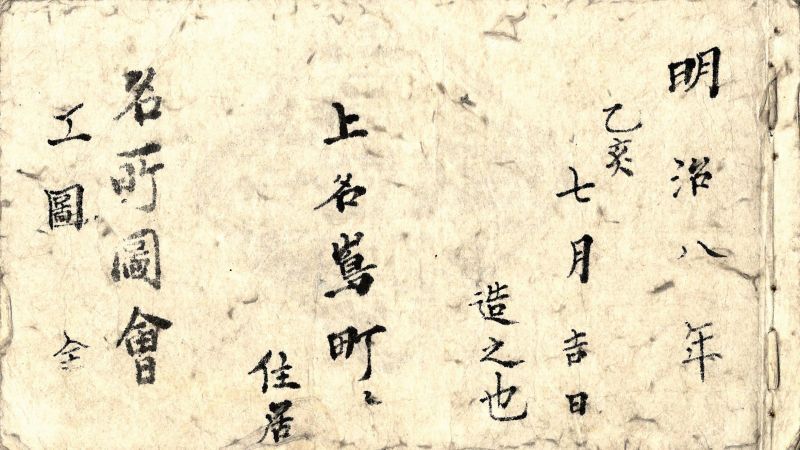 明治八年
乙亥
七月吉日
造之也
上名嶌町ニ
住居
名所圖會
工圖 全